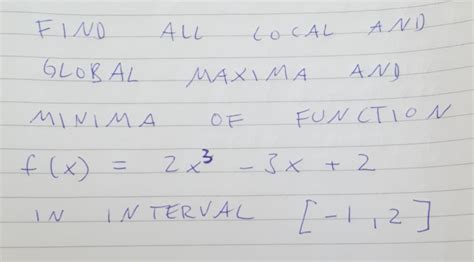 FIND ALL LOCAL AND
GLOBAL MAXIMA AND
MINIMA OF FUNCTION
f(x) = 2x³ - 3x + 2
IN INTERVAL [-1, 2]